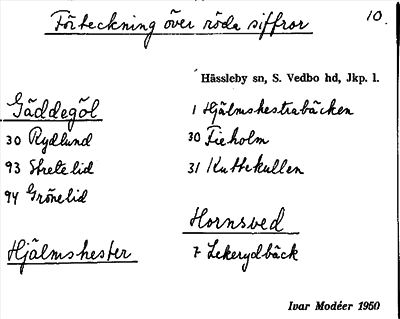 Förteckning över röda siffror
10.
Hässleby sn, S. Vedbo hd, Jkp. l.
Gäddegöl
30 Rydlund
93 Stretelid
94 Grönelid
Hjälmshester
1 Hjälmshestrabäcken
30 Fieholm
31 Kuttekullen
Hornsved
7 Lekerydbäck
Ivar Modéer 1950